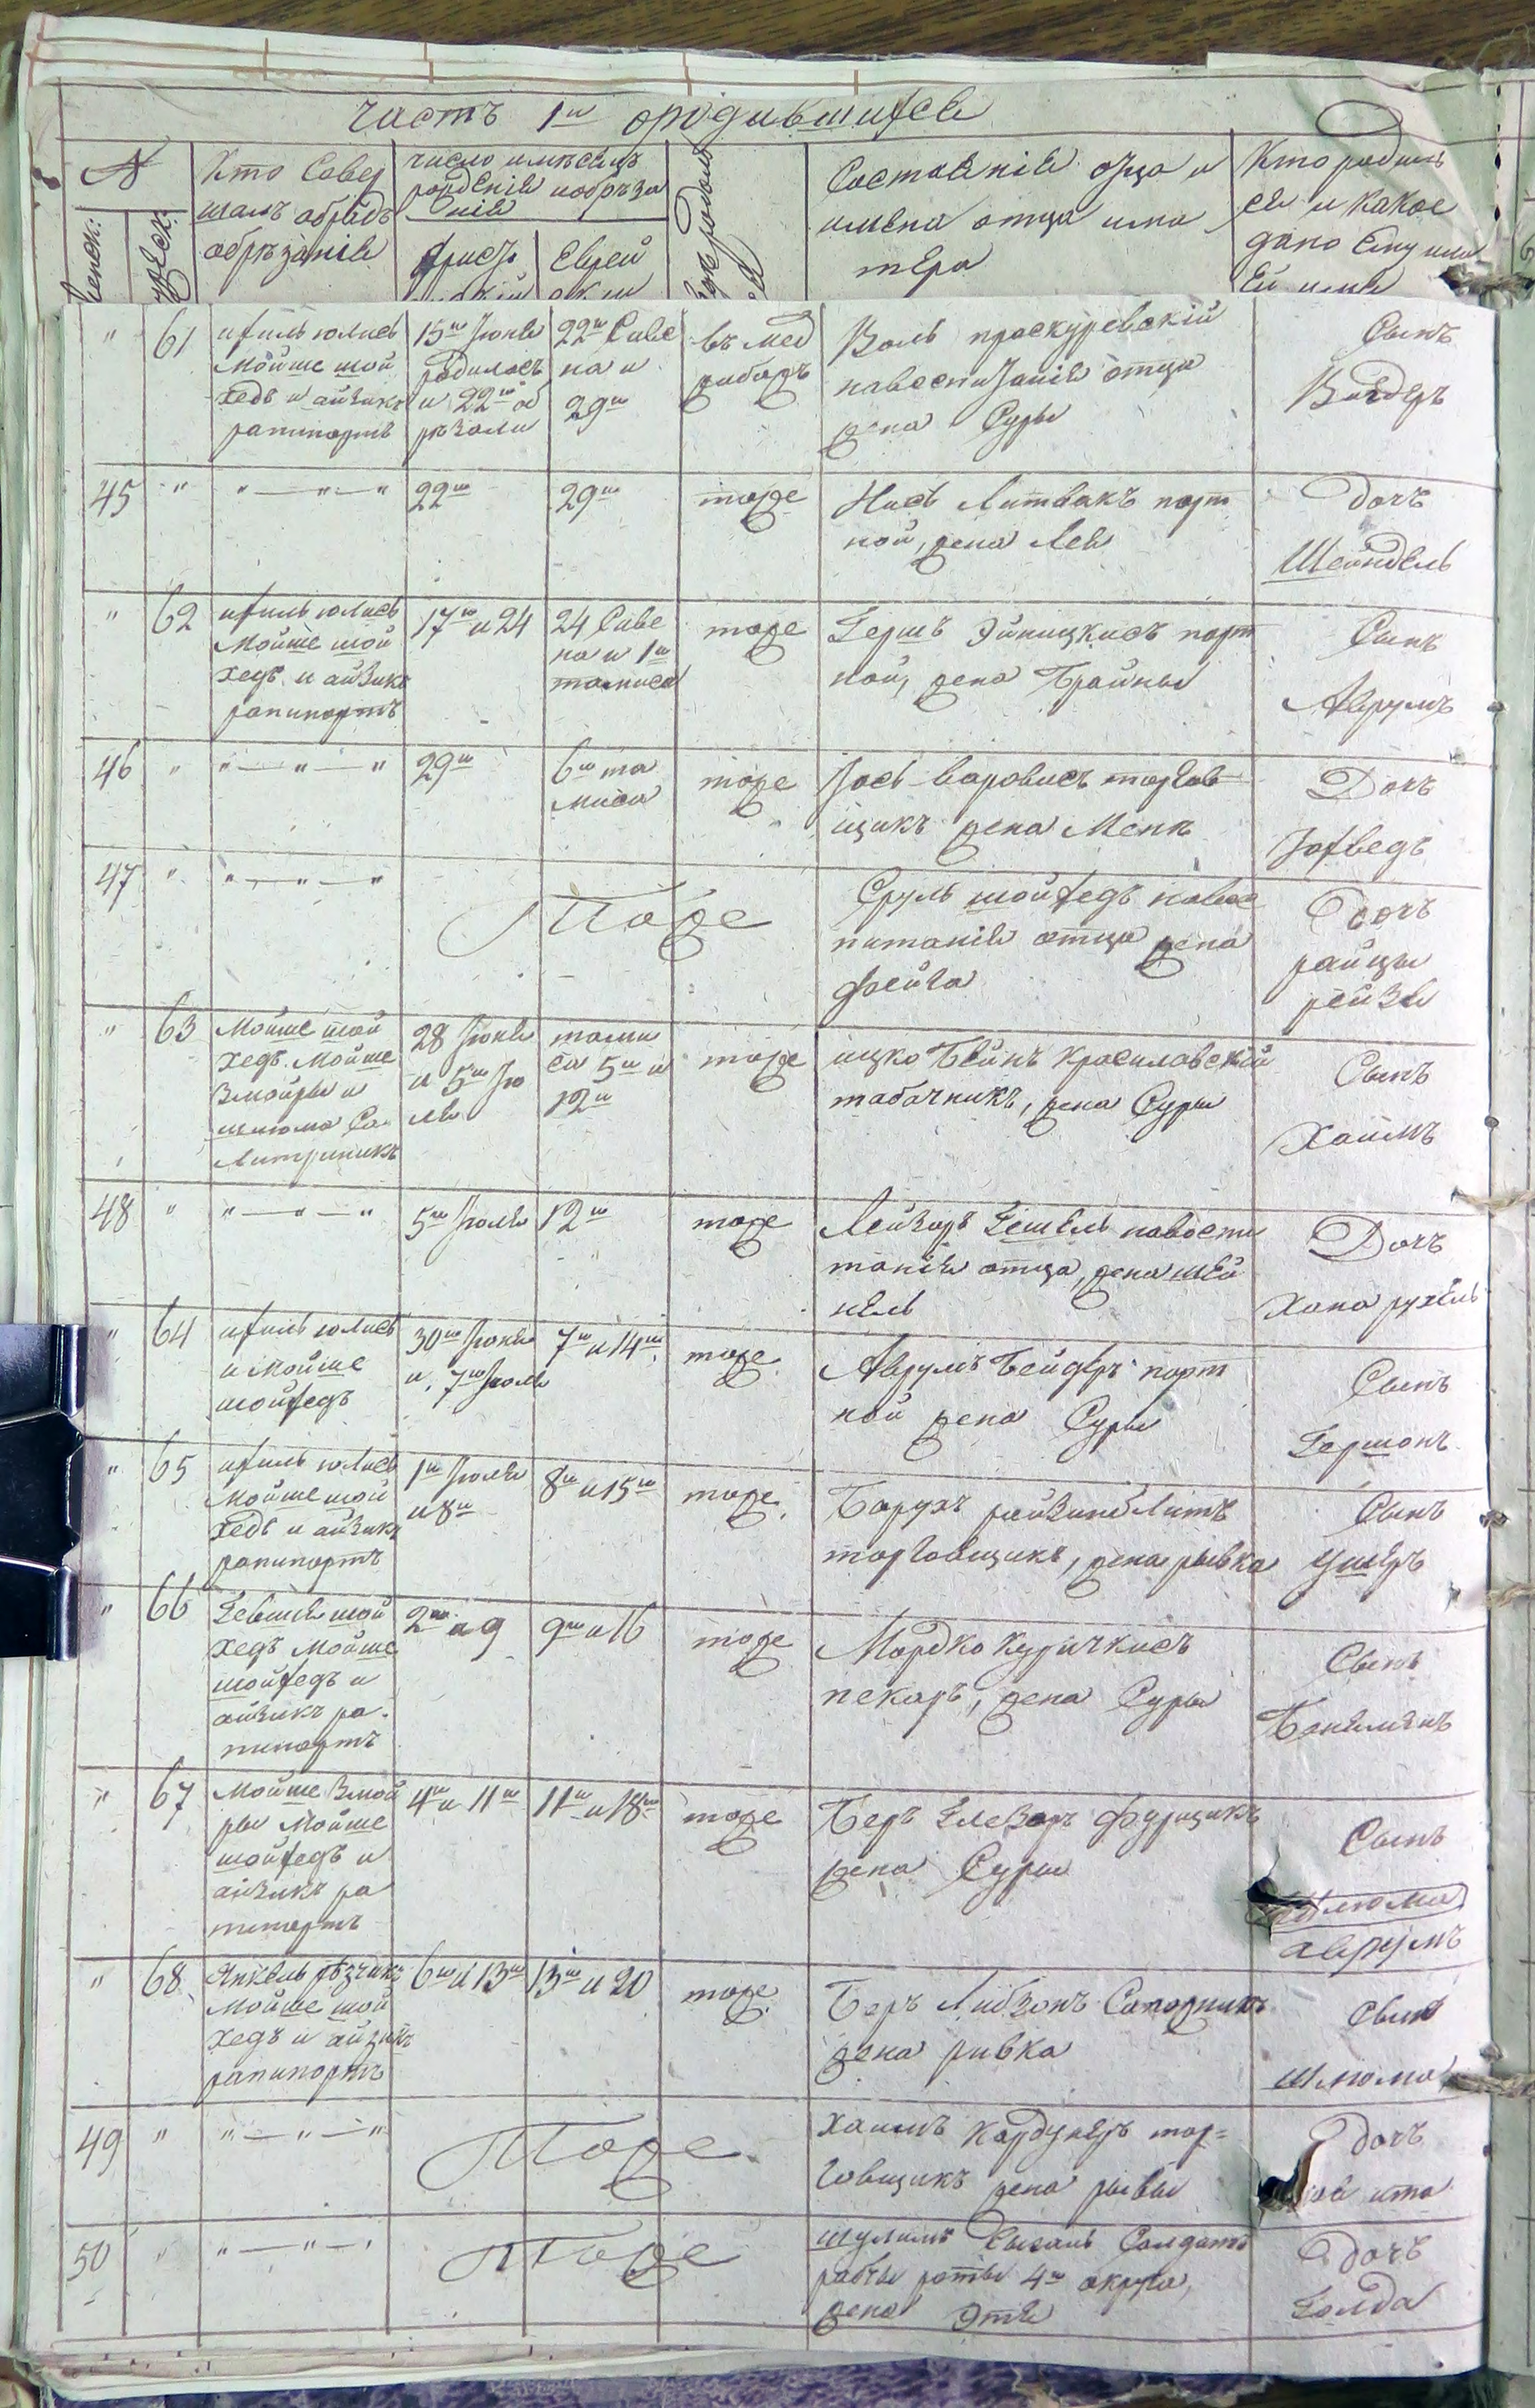 часть 1я о родившихся
№
Кто Совер
шалъ обрядъ
обрѣзанія
число и мѣсяцъ
рожденія и обрѣза
нія
Христі
Еврей
Состояніе отца и
имена отца и ма
тери
Кто родил
ся и какое
дано Ему или
Ей имя
" 61
ихиль юлись
Мойше шой
хедъ и айзикъ
рапипортъ
15го Іюня
родилось
и 22го об
рѣзали
22го Сиве
на и
29го
въ Мед
жибожъ
Воль проскуровскій
на воспитаніи отца
жена Суры
Сынъ
45 " " — " — "
22го
29го
тоже
Нисъ Литвакъ порт
ной, жена Лея
дочь
Шейндель
" 62
ихиль юлись
Мойше шой
хедъ и айзикъ
рапипортъ
17го и 24
24 Сиве
на и 1го
тамиса
тоже
Гершъ порт
ной, жена Брайны
Сынъ
Аврумъ
46 " " — " — "
29го
6го та
миса
тоже
Іось торгов
щикъ жена
Дочь
Іохведъ
47 " " — " — "
Тоже
Сруль шойхедъ на вос
питаніи отца жена
фейга
Дочь
райцы
рейзя
" 63
Мойше шой
хедъ Мойше
Змойры и
шлюма Са
литриникъ
28 Іюня
и 5го Ію
ля
тами
са 5го и
12го
тоже
ицко Бейнъ Красиловскій
табачникъ, жена Суры
Сынъ
Хаимъ
48 " " — " — "
5го Іюля
12го
тоже
Лейзоръ Гешель на воспи
таніи отца, жена шей
нель
Дочь
Хана рухель
" 64
ихиль юлись
и Мойше
шойхедъ
30го Іюня
и 7го Іюля
7го и 14го
тоже
Аврумъ Бейдеръ порт
ной жена Суры
Сынъ
Гершонъ
" 65
ихиль юлись
Мойше шой
хедъ и айзикъ
рапипортъ
1го Іюля
и 8го
8го и 15го
тоже
Борухъ райзинблитъ
торговщикъ, жена рывка
Сынъ
ушеръ
" 66
Гевшія шой
хедъ Мойше
шойхедъ и
айзикъ ра
пипортъ
2го и 9
9го и 16
тоже
Мордко Куричкисъ
пекаръ, жена Суры
Сынъ
Беньяминъ
" 67
Мойше Змой
ры Мойше
шойхедъ и
айзикъ ра
пипортъ
4го и 11го
11го и 18го
тоже
Беръ Глезоръ фурщикъ
жена Суры
Сынъ
аврумъ
" 68
Янкель рѣзчикъ
Мойше шой
хедъ и айзикъ
рапипортъ
6го и 13го
13го и 20
тоже
Беръ Либзонъ Сапожникъ
жена ривка
Сынъ
шлюма
49 " " — " — "
Тоже
Хаимъ Кордунеръ тор=
говщикъ жена рывы
дочь
ита
50 " " — " — "
Тоже
шулимъ Цыганъ Солдатъ
рабчы роты 4го округа,
жена Этя
дочь
Голда